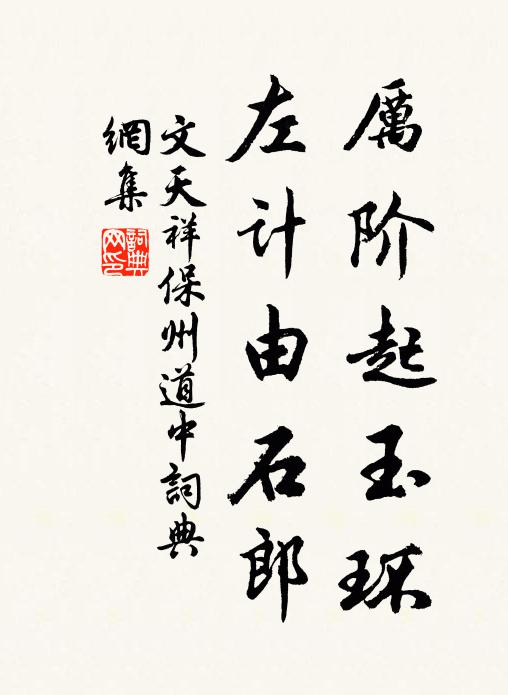 厲阶起玉环
左计由石郎
文天祥保州道中詞典
網集
詞典
网印